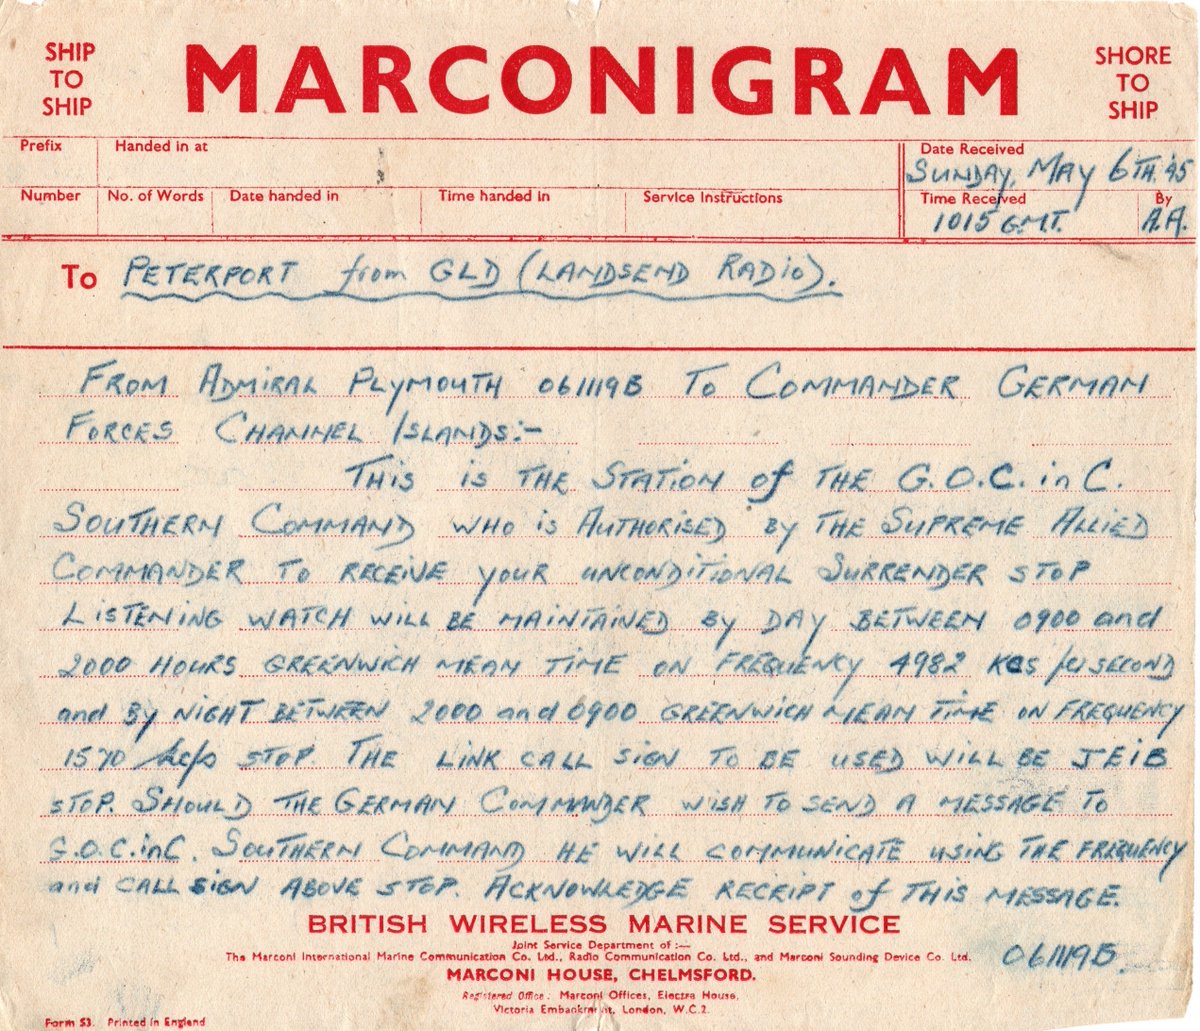 SHIP TO SHIP
MARCONIGRAM
SHORE TO SHIP
Prefix
Handed in at
Date Received
SUNDAY, MAY 6TH. '45
Number
No. of Words
Date handed in
Time handed in
Service Instructions
Time Received
By
1015 G.M.T.
A.A.
To PETERPORT from GLD (LANDSEND RADIO).
FROM ADMIRAL PLYMOUTH 061119B TO COMMANDER GERMAN
FORCES CHANNEL ISLANDS:-
THIS IS THE STATION of THE G.O.C. in C.
SOUTHERN COMMAND WHO IS AUTHORISED BY THE SUPREME ALLIED
COMMANDER TO RECEIVE YOUR UNCONDITIONAL SURRENDER STOP
LISTENING WATCH WILL BE MAINTAINED BY DAY BETWEEN 0900 and
2000 HOURS GREENWICH MEAN TIME ON FREQUENCY 4982 KCS SECOND
and BY NIGHT BETWEEN 2000 and 0900 GREENWICH MEAN TIME ON FREQUENCY
1570 kc/s STOP. THE LINK CALL SIGN TO BE USED WILL BE JEIB
STOP. SHOULD THE GERMAN COMMANDER WISH TO SEND A MESSAGE TO
G.O.C. in C. SOUTHERN COMMAND HE WILL COMMUNICATE USING THE FREQUENCY
and CALL SIGN ABOVE STOP. ACKNOWLEDGE RECEIPT of THIS MESSAGE.
BRITISH WIRELESS MARINE SERVICE
061119B.
Joint Service Department of :—
The Marconi International Marine Communication Co. Ltd., Radio Communication Co. Ltd., and Marconi Sounding Device Co. Ltd.
MARCONI HOUSE, CHELMSFORD.
Registered Office: Marconi Offices, Electra House,
Victoria Embankment, London, W.C.2.
Form 53. Printed in England